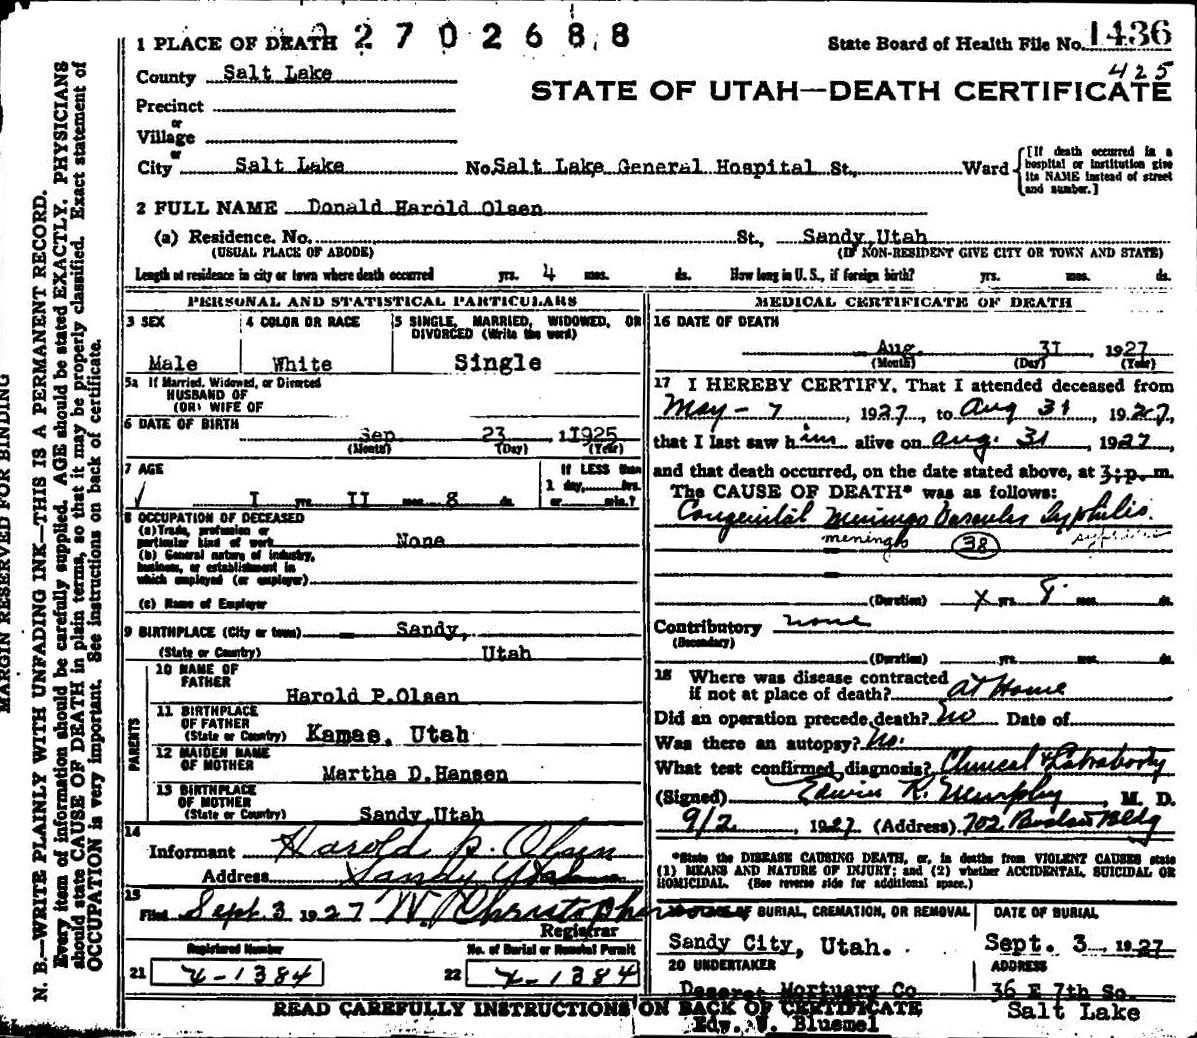 1 PLACE OF DEATH 2702688
State Board of Health File No. 1436
425
County Salt Lake
STATE OF UTAH—DEATH CERTIFICATE
Precinct
or
Village
or
City Salt Lake No. Salt Lake General Hospital St., Ward
[If death occurred in a hospital or institution give its NAME instead of street and number.]
2 FULL NAME Donald Harold Olsen
(a) Residence. No. St., Sandy, Utah
(USUAL PLACE OF ABODE) (IF NON-RESIDENT GIVE CITY OR TOWN AND STATE)
Length of residence in city or town where death occurred yrs. 4 mos. ds. How long in U. S., if foreign birth? yrs. mos. ds.
PERSONAL AND STATISTICAL PARTICULARS
3 SEX
Male
4 COLOR OR RACE
White
5 SINGLE, MARRIED, WIDOWED, OR
DIVORCED (Write the word)
Single
5a If Married, Widowed, or Divorced
HUSBAND OF
(OR) WIFE OF
6 DATE OF BIRTH
Sep 23 11925
(Month) (Day) (Year)
7 AGE
I yrs. II mos. 8 ds.
If LESS than
1 day, hrs.
or min.?
8 OCCUPATION OF DECEASED
(a) Trade, profession or
particular kind of work None
(b) General nature of industry,
business, or establishment in
which employed (or employer)
(c) Name of Employer
9 BIRTHPLACE (City or town) Sandy,
(State or Country) Utah
PARENTS
10 NAME OF
FATHER
Harold P. Olsen
11 BIRTHPLACE
OF FATHER
(State or Country) Kamas, Utah
12 MAIDEN NAME
OF MOTHER
Martha D. Hansen
13 BIRTHPLACE
OF MOTHER
(State or Country) Sandy Utah
14
Informant Harold P. Olsen
Address Sandy Utah
15
Filed Sept 3 1927 W. Christopherson
Registrar
Registered Number
21 X-1384
No. of Burial or Removal Permit
22 X-1384
MEDICAL CERTIFICATE OF DEATH
16 DATE OF DEATH
Aug. 3I, 1927
(Month) (Day) (Year)
17 I HEREBY CERTIFY, That I attended deceased from
May - 7, 1927, to Aug 31, 1927,
that I last saw him alive on Aug. 31, 1927
and that death occurred, on the date stated above, at 3:p.m.
The CAUSE OF DEATH* was as follows:
Congenital Meningo Vascular Syphilis.
meningo 38 syphilis
(Duration) yrs. mos. ds.
Contributory none
(Secondary)
(Duration) yrs. mos. ds.
18 Where was disease contracted
if not at place of death? At Home
Did an operation precede death? No Date of
Was there an autopsy? No.
What test confirmed diagnosis? Clinical &
(Signed) Edwin R. Murphy, M. D.
9/2, 1927 (Address) 702 Bldg
*State the DISEASE CAUSING DEATH, or, in deaths from VIOLENT CAUSES state
(1) MEANS AND NATURE OF INJURY; and (2) whether ACCIDENTAL, SUICIDAL OR
HOMICIDAL. (See reverse side for additional space.)
OF BURIAL, CREMATION, OR REMOVAL
Sandy City, Utah.
DATE OF BURIAL
Sept. 3, 1927
20 UNDERTAKER
Deseret Mortuary Co
Edw. V. Bluemel
ADDRESS
36 E 7th So.
Salt Lake
READ CAREFULLY INSTRUCTIONS ON BACK OF CERTIFICATE
MARGIN RESERVED FOR BINDING
N. B.—WRITE PLAINLY WITH UNFADING INK—THIS IS A PERMANENT RECORD.
Every item of information should be carefully supplied. AGE should be stated EXACTLY. PHYSICIANS
should state CAUSE OF DEATH in plain terms, so that it may be properly classified. Exact statement of
OCCUPATION is very important. See instructions on back of certificate.